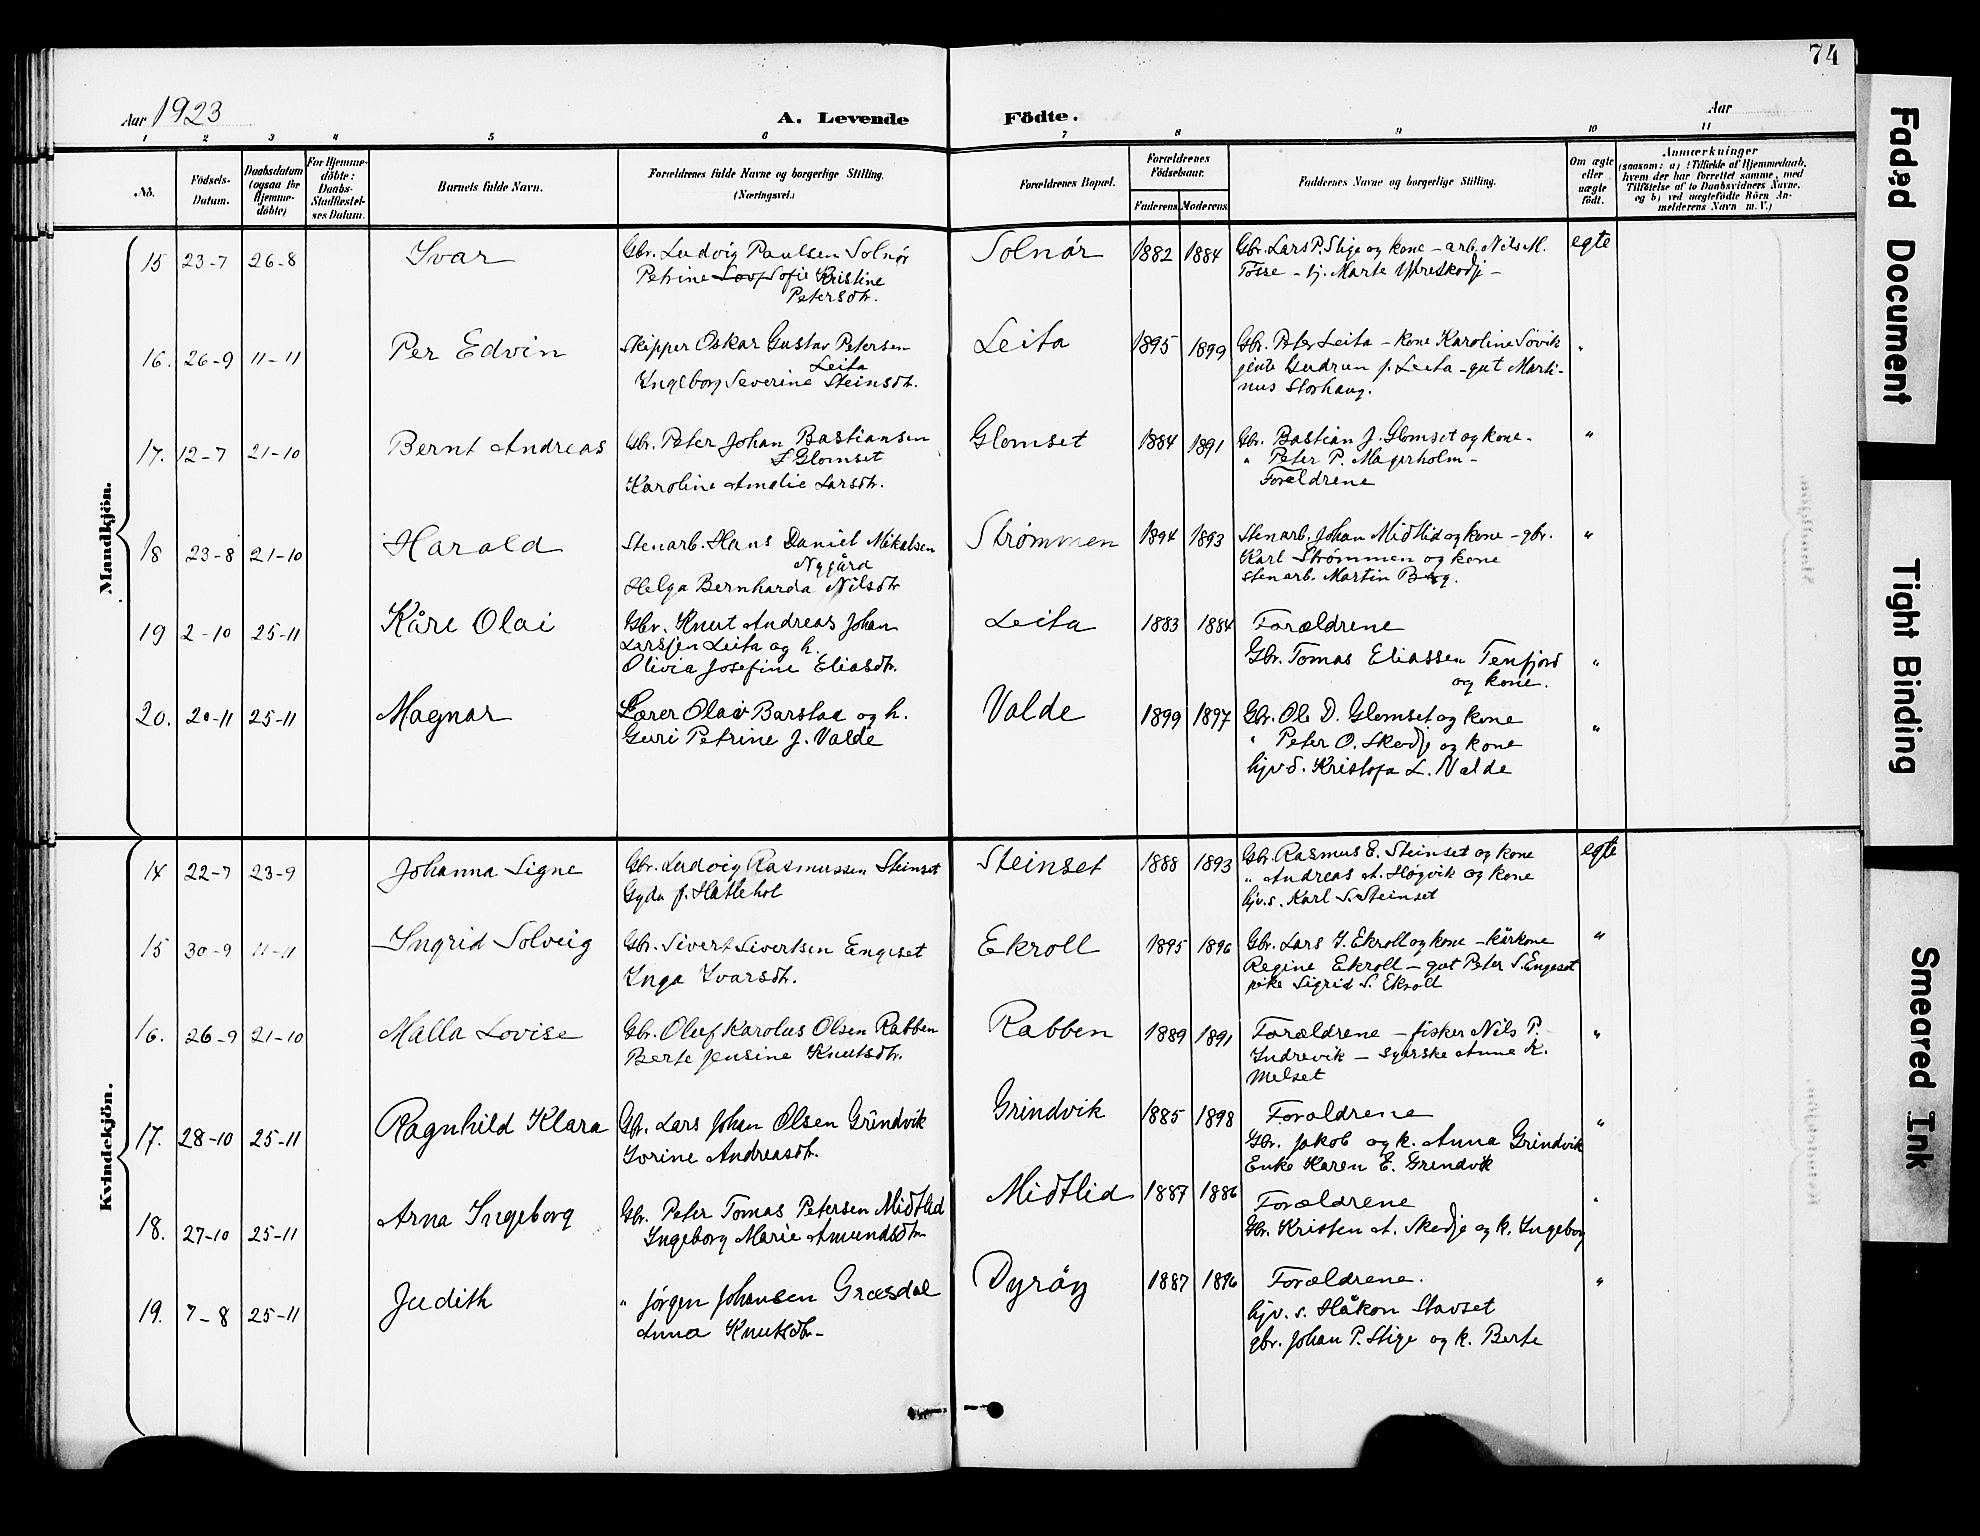 74
Aar 1923
A. Levende Födte.
Aar
1 2 3 4 5 6 7 8 9 10 11
No.
Födsels-Datum.
Daabsdatum (ogsaa for Hjemme-döbte)
For Hjemme-döbte: Daabs-Stadfæstel-ses Datum.
Barnets fulde Navn.
Forældrenes fulde Navne og borgerlige Stilling.
(Næringsvei.)
Forældrenes Bopæl.
Forældrenes Födselsaar.
Faderens Moderens
Faddernes Navne og borgerlige Stilling.
Om ægte eller uægte födt.
Anmærkninger
(saasom: a) i Tilfælde af Hjemmedaab, hvem der har forrettet samme, med Tilföielse af to Daabsvidners Navne, og b) ved uægtefödte Börn An-melderens Navn m. V.)
Mandkjön.
15 23-7 26-8 Ivar
Gbr. Ludvig Paulsen Solnør
Petrine Lovf Sofie Kristine
Petersdtr.
Solnør 1882 1884
Gbr. Lars P. Stige og kone – arb. Nils M.
Tosse – tj. Marte Ytreskodje –
egte
16. 26-9 11-11 Per Edvin
Skipper Oskar Gustav Petersen
Leita
Ingeborg Severine Steinsdtr.
Leita 1895 1899
Gbr. Peter Leita – kone Karoline Søvik
jente Gudrun p. Leita – gut Marti-
nus Storhaug.
"
17. 12-7 21-10 Bernt Andreas
Gbr. Peter Johan Bastiansen
Glomset
Karoline Amalie Larsdtr.
Glomset 1884 1891
Gbr. Bastian J. Glomset og kone.
" Peter P. Magerholm –
Forældrene
"
18 23-8 21-10 Harald
Stenarb. Hans Daniel Mikalsen
Nygård
Helga Bernharda Nilsdtr
Strømmen 1894 1893
Stenarb. Johan Midtlid og kone – gbr.
Karl Strømmen og kone
stenarb. Martin Berg.
"
19 2-10 25-11 Kåre Olai
Gbr. Knut Andreas Johan
Larssen Leita og h.
Olivia Josefine Eliasdtr.
Leita 1883 1884
Forældrene
Gbr. Tomas Eliassen Tenfjord
og kone.
"
20. 20-11 25-11 Magnar
Lærer Olav Barstad og h.
Guri Petrine J. Valde
Valde 1899 1897
Gbr. Ole D. Glomset og kone
" Peter O. Skodje og kone
hjv d. Kristofa L. Valde
"
Kvindekjön.
14 22-7 23-9 Johanna Signe
Gbr. Ludvig Rasmussen Steinset
Gyda f. Hatlehol
Steinset 1888 1893
Gbr. Rasmus E. Steinset og kone
" Andreas A. Høgvik og kone
hjv. s. Karl S. Steinset
egte
15 30-9 11-11 Ingrid Solveig
Gbr. Sivert Sivertsen Engeset
Inga Ivarsdtr.
Ekroll 1895 1896
Gbr. Lars I. Ekroll og kone – kårkone
Regine Ekroll – gut Peter S. Engeset
pike Sigrid S. Ekroll
"
16. 26-9 21-10 Malla Lovise
Gbr. Oluf Karolus Olsen Rabben
Berte Jensine Knutsdtr.
Rabben 1889 1891
Forældrene – fisker Nils P.
Indrevik – syerske Anne K.
Melset
"
17. 28-10 25-11 Ragnhild Klara
Gbr. Lars Johan Olsen Grindvik
Jorine Andreasdtr.
Grindvik 1885 1898
Forældrene
Gbr. Jakob og k. Anna Grindvik
Enke Karen E. Grindvik
"
18. 27-10 25-11 Arna Ingeborg
Gbr. Peter Tomas Petersen Midtlid
Ingeborg Marie Amundsdtr
Midtlid 1887 1886
Forældrene
Gbr. Kristen A. Skodje og k. Ingeborg
"
19. 7-8 25-11 Judith
" Jørgen Johansen Græsdal
Anna Knutsdtr –
Dyrøy 1887 1896
Forældrene.
hjv. s. Håkon Stavset
gbr. Johan P. Stige og k. Berte
"
Faded Document
Tight Binding
Smeared Ink